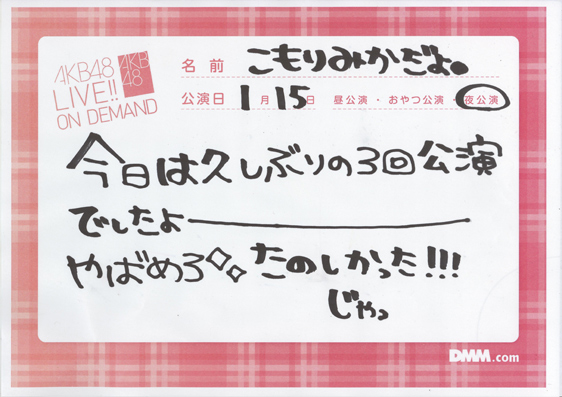 AKB48
LIVE!!
ON DEMAND
AKB
48
名前 こもりみかだよ。
公演日 1月15日 昼公演・おやつ公演・夜公演
今日は久しぶりの3回公演
でしたよ―――
やばめろ◇◇ たのしかった!!!
じゃっ
DMM.com